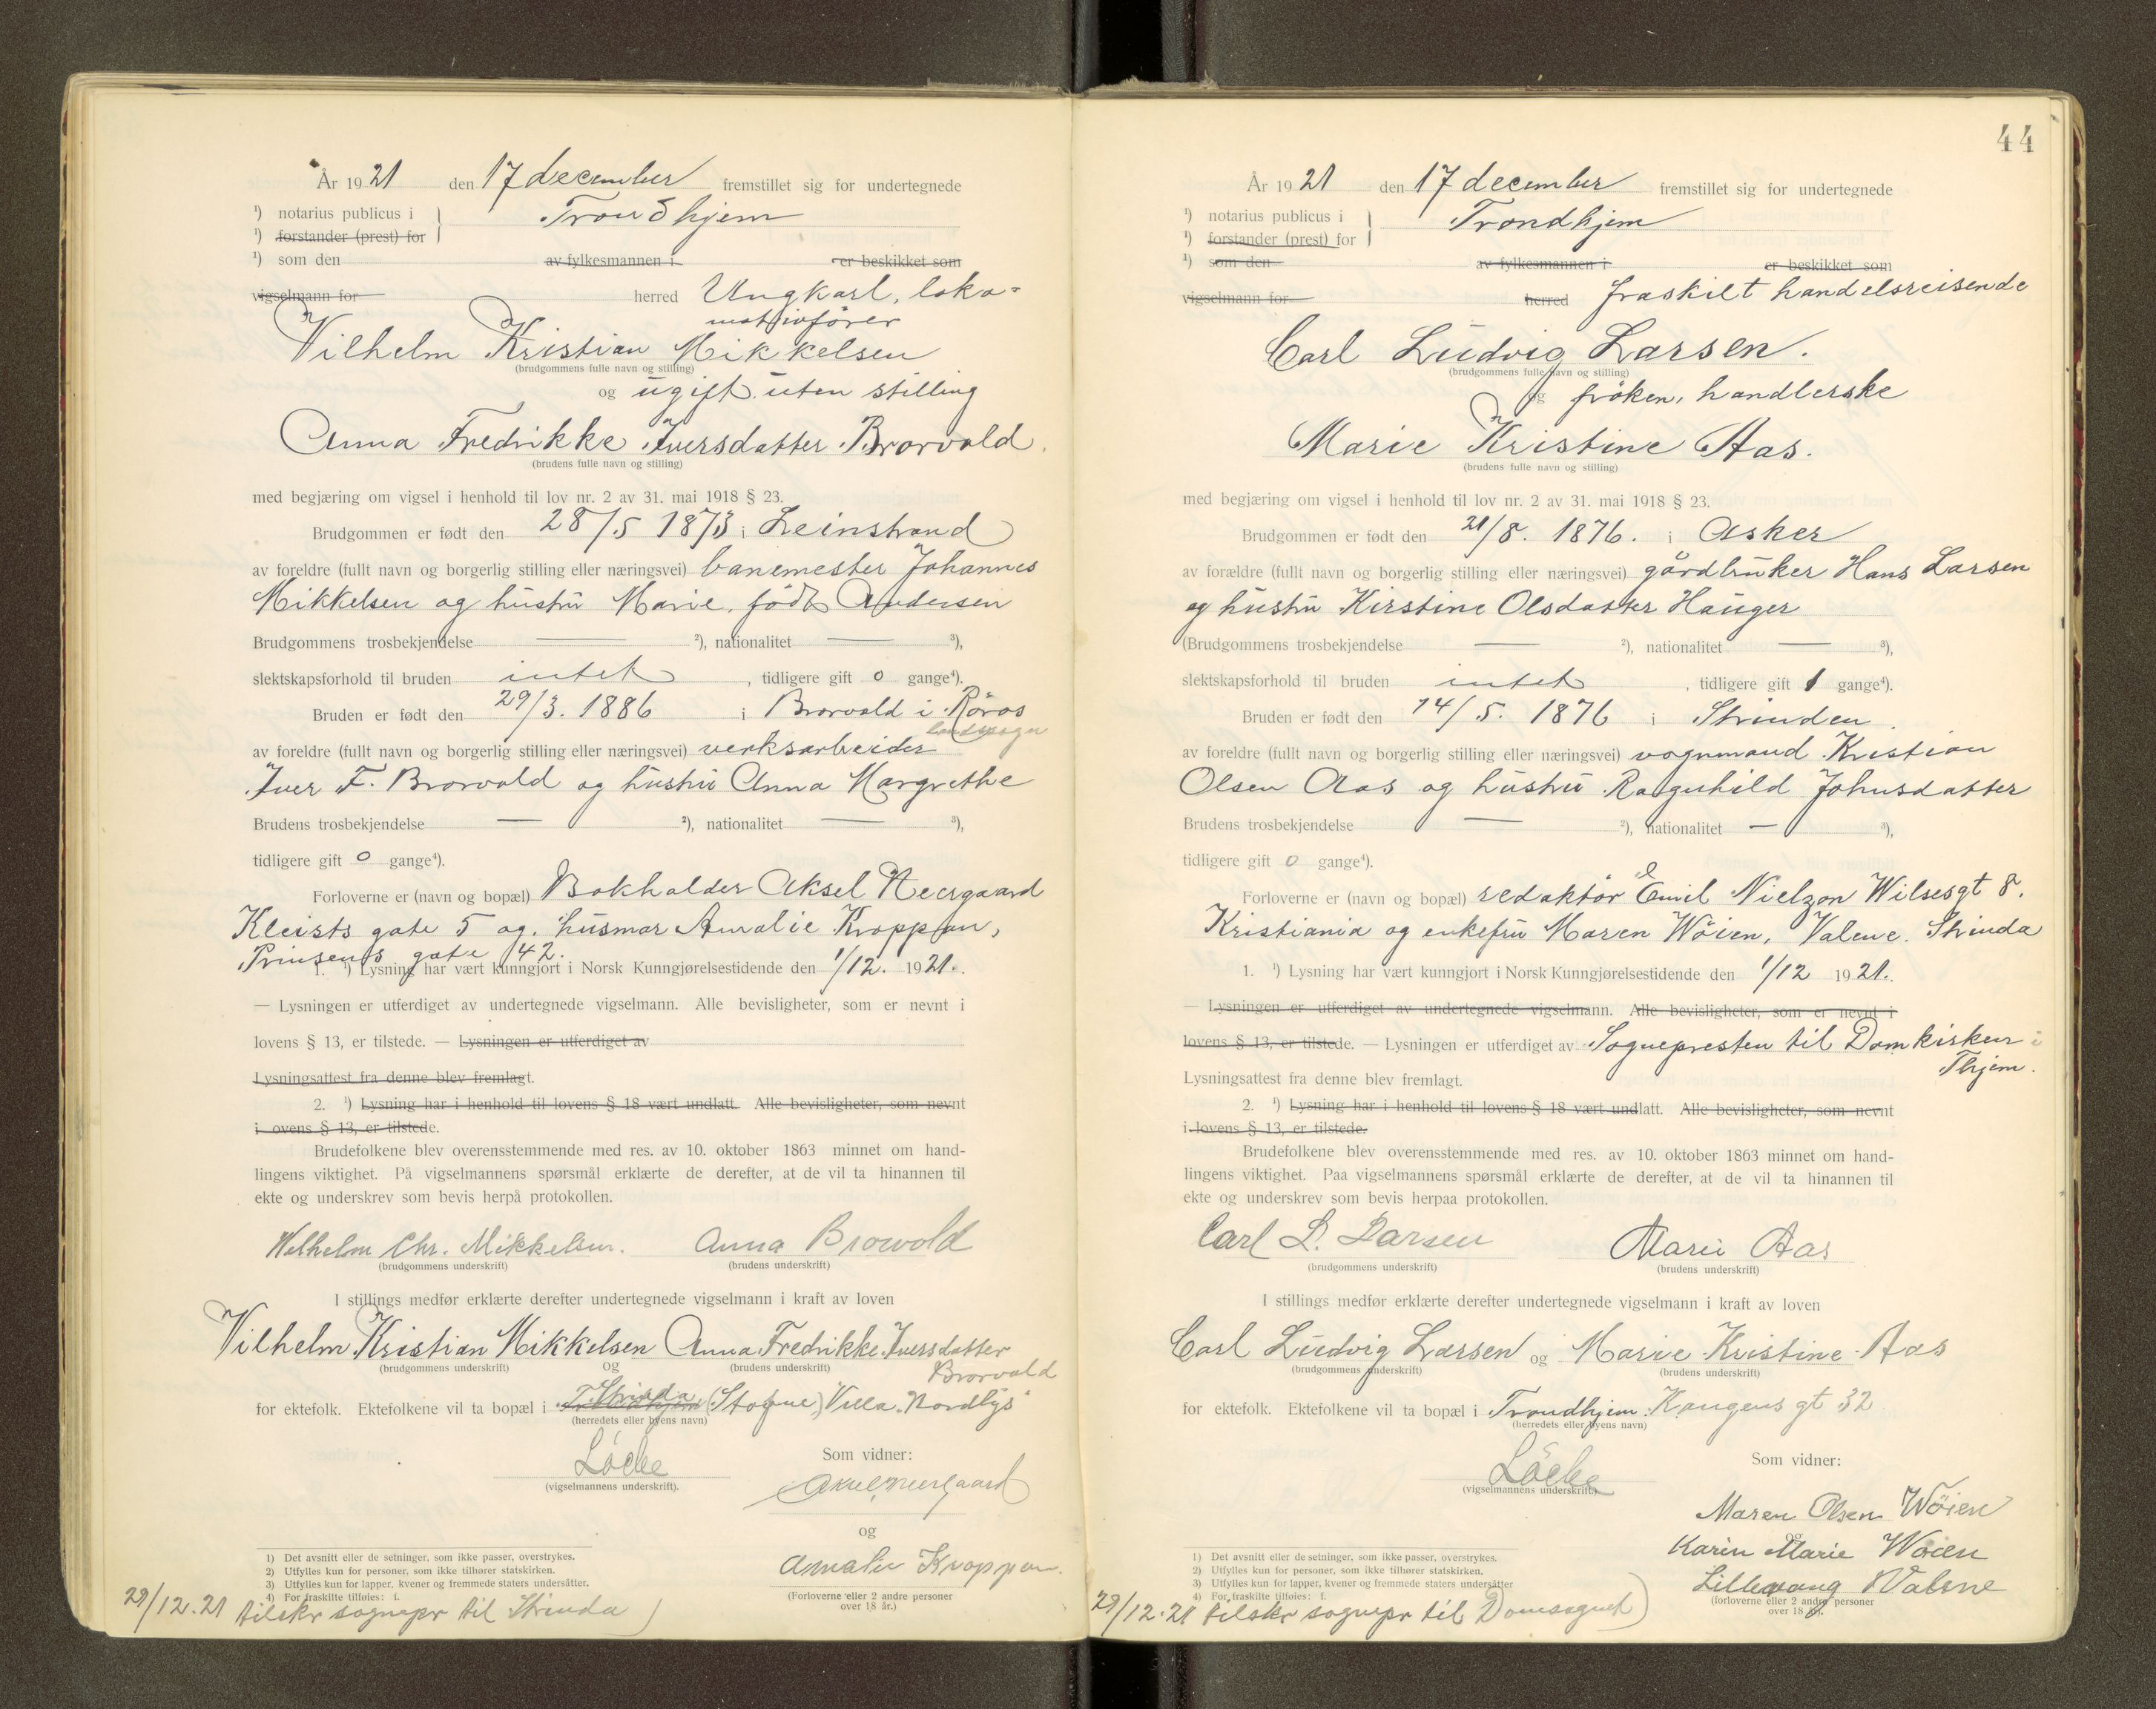 År 1921 den 17 december fremstillet sig for undertegnede
¹) notarius publicus i Trondhjem
¹) forstander (prest) for
¹) som den av fylkesmannen i er beskikket som
vigselmann for herred Ungkarl, loko-
motivförer
Vilhelm Kristian Mikkelsen
(brudgommens fulle navn og stilling)
og ugift uten stilling
Anna Fredrikke Iversdatter Brorvold.
(brudens fulle navn og stilling)
med begjæring om vigsel i henhold til lov nr. 2 av 31. mai 1918 § 23.
Brudgommen er født den 28/5 1873 i Leinstrand
av foreldre (fullt navn og borgerlig stilling eller næringsvei) banemester Johannes
Mikkelsen og hustru Marie, född Andersen
Brudgommens trosbekjendelse — ²), nationalitet — ³),
slektskapsforhold til bruden intet, tidligere gift 0 gange⁴).
Bruden er født den 29/3. 1886 i Brorvold i Röros
landsogn
av foreldre (fullt navn og borgerlig stilling eller næringsvei) verksarbeider
Iver F. Brorvold og hustru Anna Margrethe
Brudens trosbekjendelse — ²), nationalitet — ³),
tidligere gift 0 gange⁴).
Forloverne er (navn og bopæl) Bokholder Aksel Neergaard
Kleists gate 5 og husmor Amalie Kroppan,
Prinsens gate 42.
1. ¹) Lysning har vært kunngjort i Norsk Kunngjørelsestidende den 1/12. 1921.
— Lysningen er utferdiget av undertegnede vigselmann. Alle bevisligheter, som er nevnt i
lovens § 13, er tilstede. — Lysningen er utferdiget av
Lysningsattest fra denne blev fremlagt.
2. ¹) Lysning har i henhold til lovens § 18 vært undlatt. Alle bevisligheter, som nevnt
i ovens § 13, er tilstede.
Brudefolkene blev overensstemmende med res. av 10. oktober 1863 minnet om hand-
lingens viktighet. På vigselmannens spørsmål erklærte de derefter, at de vil ta hinannen til
ekte og underskrev som bevis herpå protokollen.
Wilhelm Chr. Mikkelsen. Anna Brovold
(brudgommens underskrift) (brudens underskrift)
I stillings medfør erklærte derefter undertegnede vigselmann i kraft av loven
Vilhelm Kristian Mikkelsen Anna Fredrikke Iversdatter
(brudgommens underskrift) og (brudens underskrift) Brorvold
for ektefolk. Ektefolkene vil ta bopæl i Trondhjem Strinda (Stogne) Villa "Nordlys"
(herredets eller byens navn)
Som vidner:
Löche
(vigselmannens underskrift).
Aksel Neergaard
og
Amalie Kroppan.
(Forloverne eller 2 andre personer
over 18 år.)
1) Det avsnitt eller de setninger, som ikke passer, overstrykes.
2) Utfylles kun for personer, som ikke tilhører statskirken.
3) Utfylles kun for lapper, kvener og fremmede staters undersåtter.
4) For fraskilte tilføies: f.
29/12.21 tilskr sognepr til Strinda)
44
År 1921 den 17 december fremstillet sig for undertegnede
¹) notarius publicus i Trondhjem
¹) forstander (prest) for
¹) som den av fylkesmannen i er beskikket som
vigselmann for herred fraskilt handelsreisende
Carl Ludvig Larsen.
(brudgommens fulle navn og stilling)
og fröken, handlerske
Marie Kristine Aas.
(brudens fulle navn og stilling)
med begjæring om vigsel i henhold til lov nr. 2 av 31. mai 1918 § 23.
Brudgommen er født den 21/8. 1876. i Asker
av forældre (fullt navn og borgerlig stilling eller næringsvei) gårdbruker Hans Larsen
og hustru Kirstine Olsdatter Hauger
(Brudgommens trosbekjendelse — ²), nationalitet — ³),
slektskapsforhold til bruden intet, tidligere gift 1 gange⁴).
Bruden er født den 14/5. 1876 i Strinden.
av foreldre (fullt navn og borgerlig stilling eller næringsvei) vognmand Kristian
Olsen Aas og hustru Ragnhild Johnsdatter
Brudens trosbekjendelse — ²), nationalitet — ³),
tidligere gift 0 gange⁴).
Forloverne er (navn og bopæl) redaktör Emil Nielzon Wilsesgt 8.
Kristiania og enkefru Maren Wöien, Valene. Strinda
1. ¹) Lysning har vært kunngjort i Norsk Kunngjørelsestidende den 1/12 1921.
— Lysningen er utferdiget av undertegnede vigselmann. Alle bevisligheter, som er nevnt i
lovens § 13, er tilstede. — Lysningen er utferdiget av Sognepresten til Domkirken i
Thjem.
Lysningsattest fra denne blev fremlagt.
2. ¹) Lysning har i henhold til lovens § 18 vært undlatt. Alle bevisligheter, som nevnt
i lovens § 13, er tilstede.
Brudefolkene blev overensstemmende med res. av 10. oktober 1863 minnet om hand-
lingens viktighet. Paa vigselmannens spørsmål erklærte de derefter, at de vil ta hinannen til
ekte og underskrev som bevis herpaa protokollen.
Carl L. Larsen Marie Aas
(brudgommens underskrift) (brudens underskrift)
I stillings medfør erklærte derefter undertegnede vigselmann i kraft av loven
Carl Ludvig Larsen og Marie Kristine Aas
(brudgommens underskrift) (brudens underskrift)
for ektefolk. Ektefolkene vil ta bopæl i Trondhjem: Kongens gt 32
(herredets eller byens navn)
Som vidner:
Löche
(vigselmannens underskrift.)
Maren Olsen Wöien
og
Karin Marie Wöien
Lillevang Valene
(forloverne eller 2 andre personer
over 18 år.
1) Det avsnitt eller de setninger, som ikke passer, overstrykes.
2) Utfylles kun for personer, som ikke tilhører statskirken.
3) Utfylles kun for lapper, kvener og fremmede staters undersåtter
4) For fraskilte tilføies: f.
29/12.21 tilskr sognepr til Domsognet)